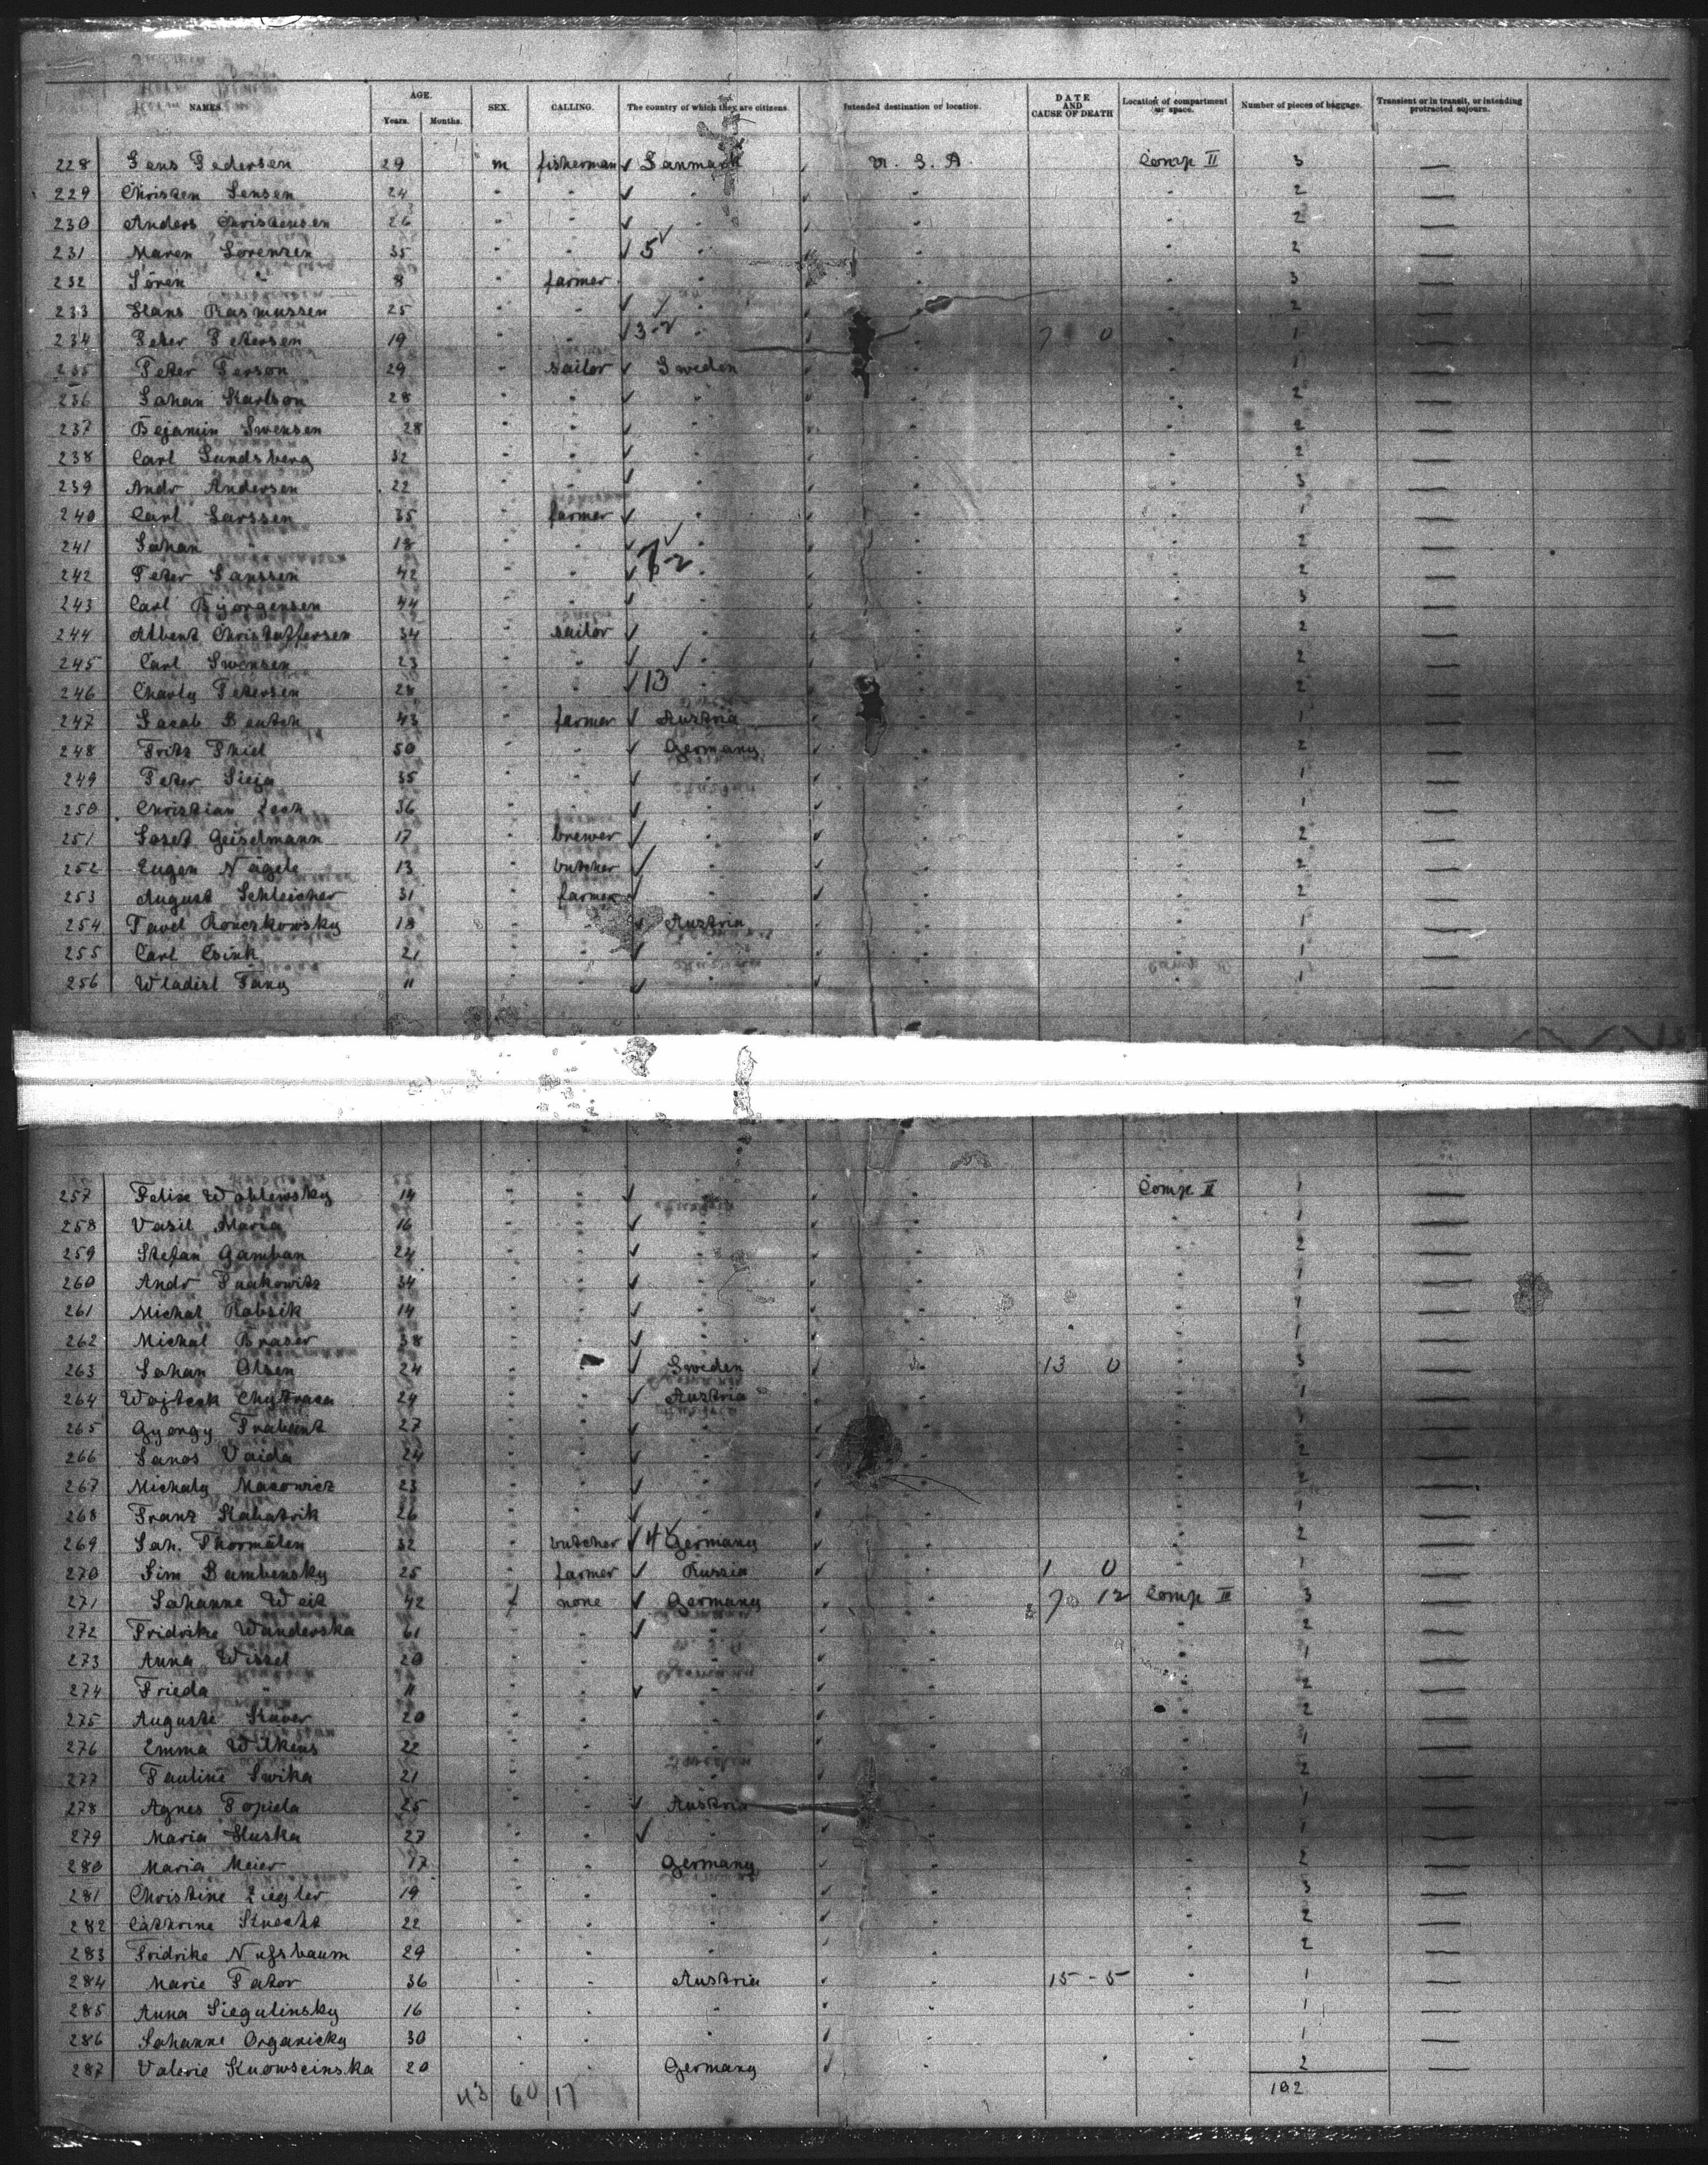 NAMES. AGE. Years. Months. SEX. CALLING. The country of which they are citizens. Intended destination or location. DATE AND CAUSE OF DEATH Location of compartment or space. Number of pieces of baggage. Transient or in transit, or intending protracted sojourn.
228 Jens Pedersen 29 m fisherman Danmark U. S. A. Comp II 3 —
229 Christen Jensen 24 " " " " " 2 —
230 Anders Christensen 26 " " " " " 2 —
231 Maren Lorenzen 35 " " 5 " " " 2 —
232 Sören " 8 " farmer " " " 3 —
233 Hans Rasmussen 25 " " " " " 2 —
234 Peter Petersen 19 " " 3-2 " " 7 0 " 1 —
235 Peter Person 29 " sailor Sweden " " 1 —
236 Johan Karlson 28 " " " " " 2 —
237 Bejamin Swensen 28 " " " " " 2 —
238 Carl Lundsberg 32 " " " " " 2 —
239 Andr Andersen 22 " " " " " 3 —
240 Carl Larssen 35 " farmer " " " 1 —
241 Johan " 18 " " " " " 2 —
242 Peter Janssen 42 " " " " " 2 —
243 Carl Bjorgensen 44 " " " " " 3 —
244 Albert Christoffersen 34 " sailor " " " 2 —
245 Carl Swensen 23 " " " " " 2 —
246 Charly Petersen 28 " " 13 " " " 2 —
247 Jacob Bentch 43 " farmer Austria " " 1 —
248 Fritz Thiel 50 " " Germany " " 2 —
249 Peter Sieja 35 " " " " " 1 —
250 Christian Zech 36 " " " " " 1 —
251 Josef Geiselmann 17 " brewer " " " 2 —
252 Eugen Nägele 13 " butcher " " " 2 —
253 August Schleicher 31 " farmer " " " 2 —
254 Pavel Ronczkowsky 18 " " Austria " " 1 —
255 Carl Csink 21 " " " " " 1 —
256 Wladisl Fany 11 " " " " " 1 —
257 Felix Wohlewsky 14 " " " " Comp II 1 —
258 Vasil Maria 16 " " " " " 1 —
259 Stefan Gamban 24 " " " " " 2 —
260 Andr 34 " " " " " 1 —
261 Michal Robsik 14 " " " " " 1 —
262 Michal Braser 38 " " " " " 1 —
263 Johan Olsen 24 " Sweden " 13 0 " 3 —
264 Wojtech Chytraca 24 " " Austria " " 1 —
265 Gyorgy Trabant 27 " " " " " 1 —
266 Janos Vaida 24 " " " " " 2 —
267 Michaly Macowicz 23 " " " " " 2 —
268 Franz Kabatrik 26 " " " " " 1 —
269 Joh. Thormälen 32 " butcher 4 Germany " " 2 —
270 Sim Bambensky 25 " farmer Russia " 1 0 " 1 —
271 Johanne Weit 42 f none Germany " 7 12 Comp II 3 —
272 Fridrike Wanderska 61 " " " " " 2 —
273 Anna Wissel 20 " " " " " 1 —
274 Frieda " 11 " " " " " 2 —
275 Auguste Kuver 20 " " " " " 2 —
276 Emma Wilkens 22 " " " " " 1 —
277 Pauline Swika 21 " " " " " 2 —
278 Agnes Popiela 25 " " Austria " " 1 —
279 Maria Huska 27 " " " " " 1 —
280 Maria Meier 17 " " Germany " " 2 —
281 Christine Ziegler 19 " " " " " 3 —
282 Cathrine Knecht 22 " " " " " 2 —
283 Fridrike Nußbaum 29 " " " " " 2 —
284 Marie Pator 36 " " Austria " 15 - 5 " 1 —
285 Anna Siegulinsky 16 " " " " " 1 —
286 Johanne Organicky 30 " " " " " 1 —
287 Valerie Knowscinska 20 " " Germany " " 2 —
43 60 17 102